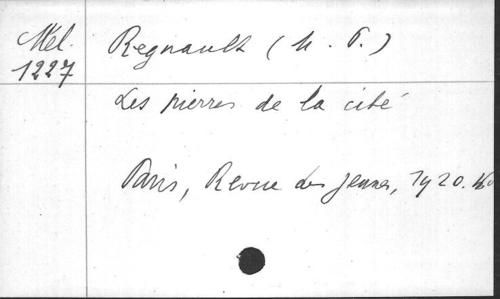 Mel.
1227
Regnault (M. P.)
Les pierres de la cité
Paris, Revue des Jeunes, 1920.